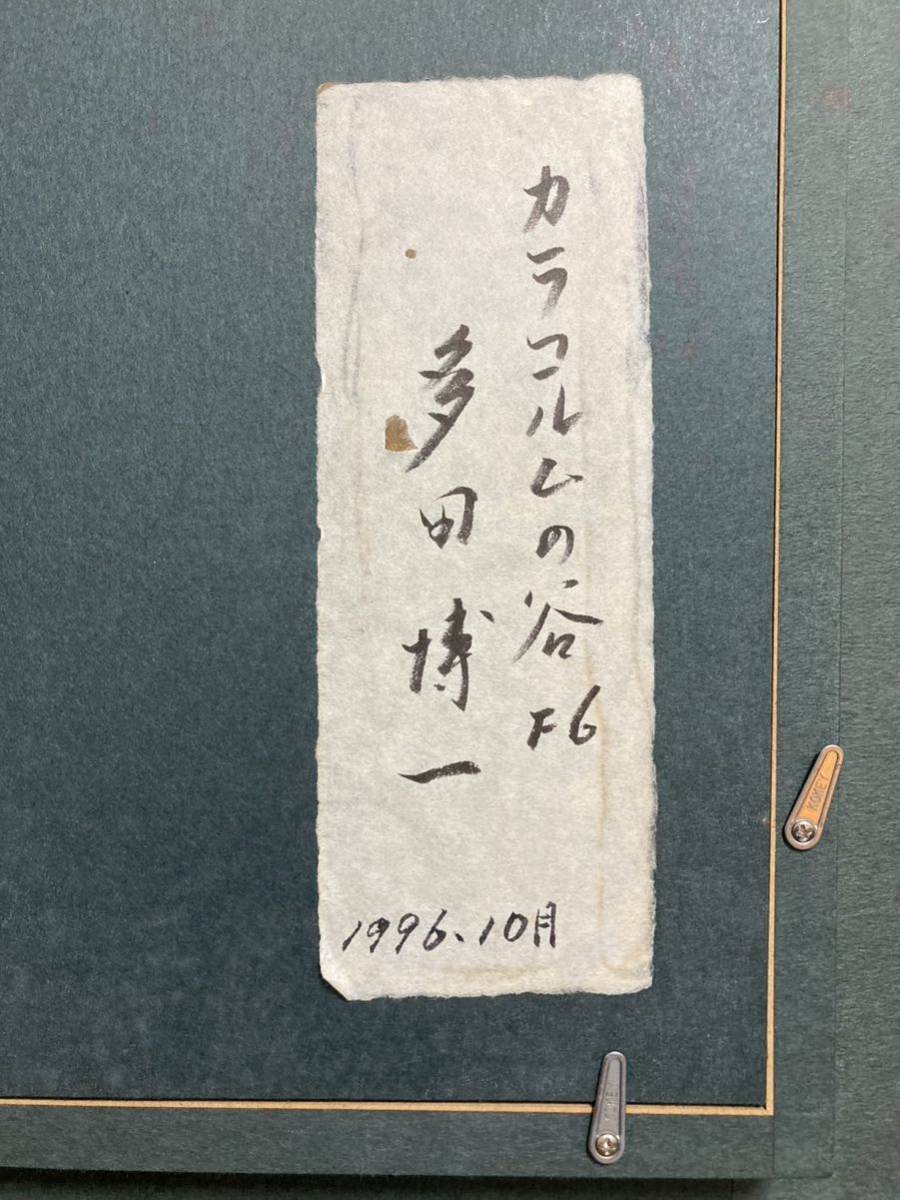 カラコルムの谷 F6
多田博一
1996、10月
KOKEY